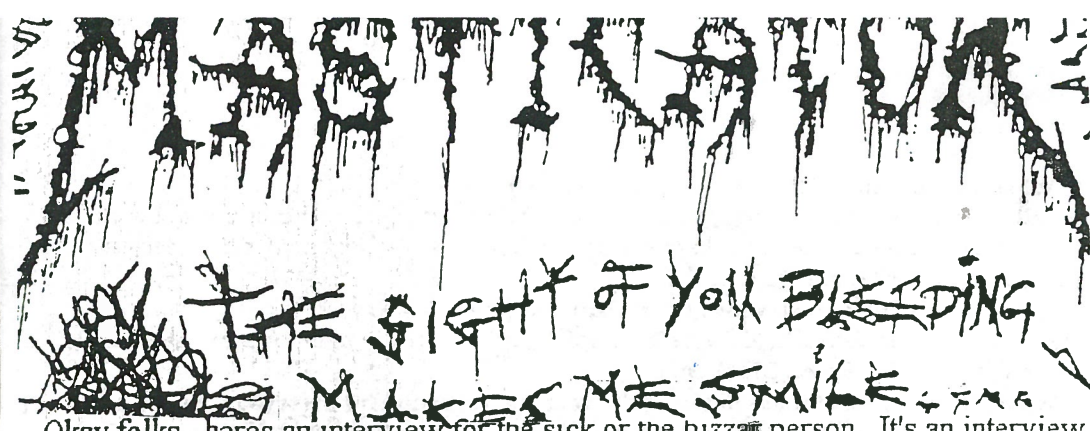 MASTICATOR
THE SIGHT OF YOU BLEEDING
MAKES ME SMILE....
Okay folks, heres an interview for the sick or the bizzar person. It's an interview